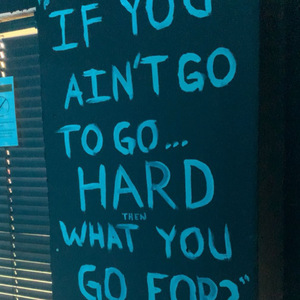 "IF YOU
AIN'T GO
TO GO...
HARD
THEN
WHAT YOU
GO FOR?"